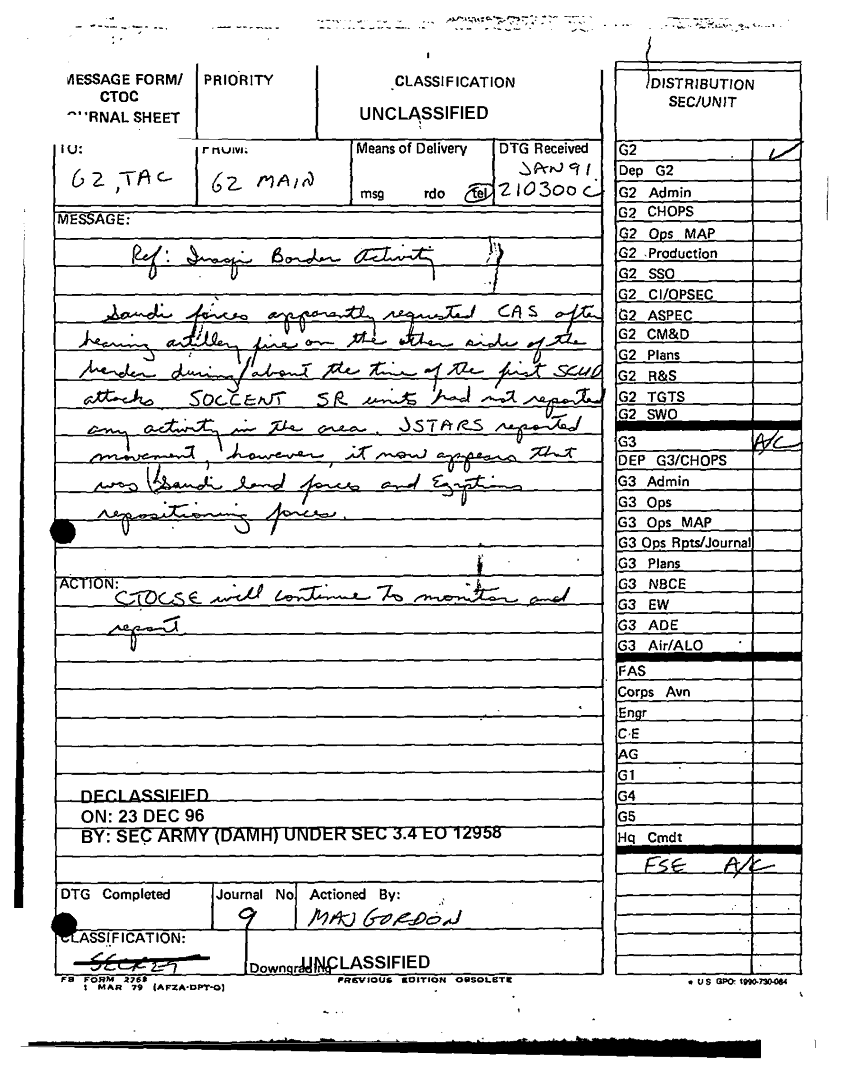 MESSAGE FORM/
CTOC
JOURNAL SHEET
PRIORITY
CLASSIFICATION
UNCLASSIFIED
TO:
G2, TAC
FROM:
G2 MAIN
Means of Delivery
msg rdo tel
DTG Received
JAN 91
210300C
MESSAGE:
Ref: Iraqi Border Activity
Saudi forces apparently requested CAS after
hearing artillery fire on the other side of the
border during/about the time of the first SCUD
attacks SOCCENT SR units had not reported
any activity in the area. JSTARS reported
movement, however, it now appears that
was Saudi land forces and Egyptians
repositioning forces.
ACTION:
CTOCSE will continue to monitor and
report
DECLASSIFIED
ON: 23 DEC 96
BY: SEC ARMY (DAMH) UNDER SEC 3.4 EO 12958
DTG Completed
Journal No
9
Actioned By:
MAJ GORDON
CLASSIFICATION:
SECRET
Downgrading
UNCLASSIFIED
FB FORM 2768
1 MAR 79 (AFZA-DPT-O)
PREVIOUS EDITION OBSOLETE
DISTRIBUTION
SEC/UNIT
G2 ✓
Dep G2
G2 Admin
G2 CHOPS
G2 Ops MAP
G2 Production
G2 SSO
G2 CI/OPSEC
G2 ASPEC
G2 CM&D
G2 Plans
G2 R&S
G2 TGTS
G2 SWO
G3 A/C
DEP G3/CHOPS
G3 Admin
G3 Ops
G3 Ops MAP
G3 Ops Rpts/Journal
G3 Plans
G3 NBCE
G3 EW
G3 ADE
G3 Air/ALO
FAS
Corps Avn
Engr
C-E
AG
G1
G4
G5
Hq Cmdt
FSE A/C
* U S GPO: 1990-730-064